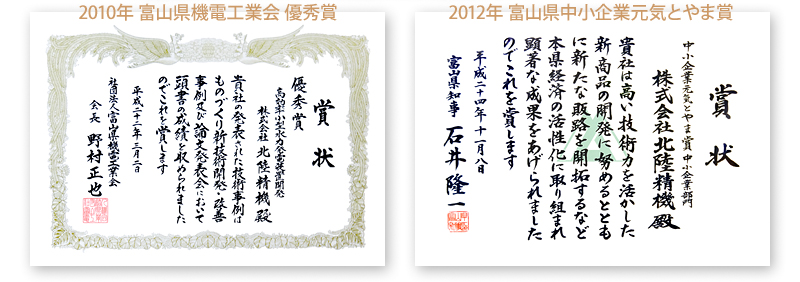 2010年 富山県機電工業会 優秀賞
賞状
優秀賞
高効率小型水力発電装置開発
株式会社 北陸精機 殿
貴社の発表された技術事例は
ものづくり新技術開発・改善
事例及び論文発表会において
頭書の成績を収められました
のでこれを賞します
平成二十二年三月二日
社団法人富山県機電工業会
会長 野村正也
2012年 富山県中小企業元気とやま賞
賞状
中小企業元気とやま賞 中小企業部門
株式会社 北陸精機 殿
貴社は高い技術力を活かした
新商品の開発に努めるととも
に新たな販路を開拓するなど
本県経済の活性化に取り組まれ
顕著な成果をあげられました
のでこれを賞します
平成二十四年十一月八日
富山県知事 石井隆一